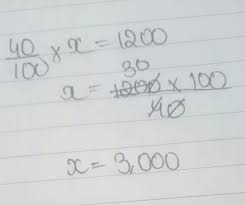 40/100 × x = 1200
30
x = 1200 × 100 / 40
x = 3,000